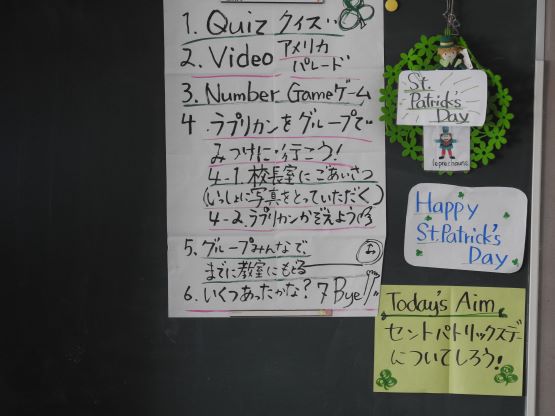 1. Quiz クイズ
2. Video アメリカ
パレード
3. Number Game ゲーム
4. ラプリカンをグループで
みつけに行こう!
4-1. 校長室にごあいさつ
(いっしょに写真をとっていただく)
4-2. ラプリカンかぞえよう
5. グループみんなで
までに教室にもどる
6. いくつあったかな? 7 Bye!!
St.
Patrick's
Day
leprechauns
Happy
St.Patrick's
Day
Today's Aim
セントパトリックスデー
についてしろう!